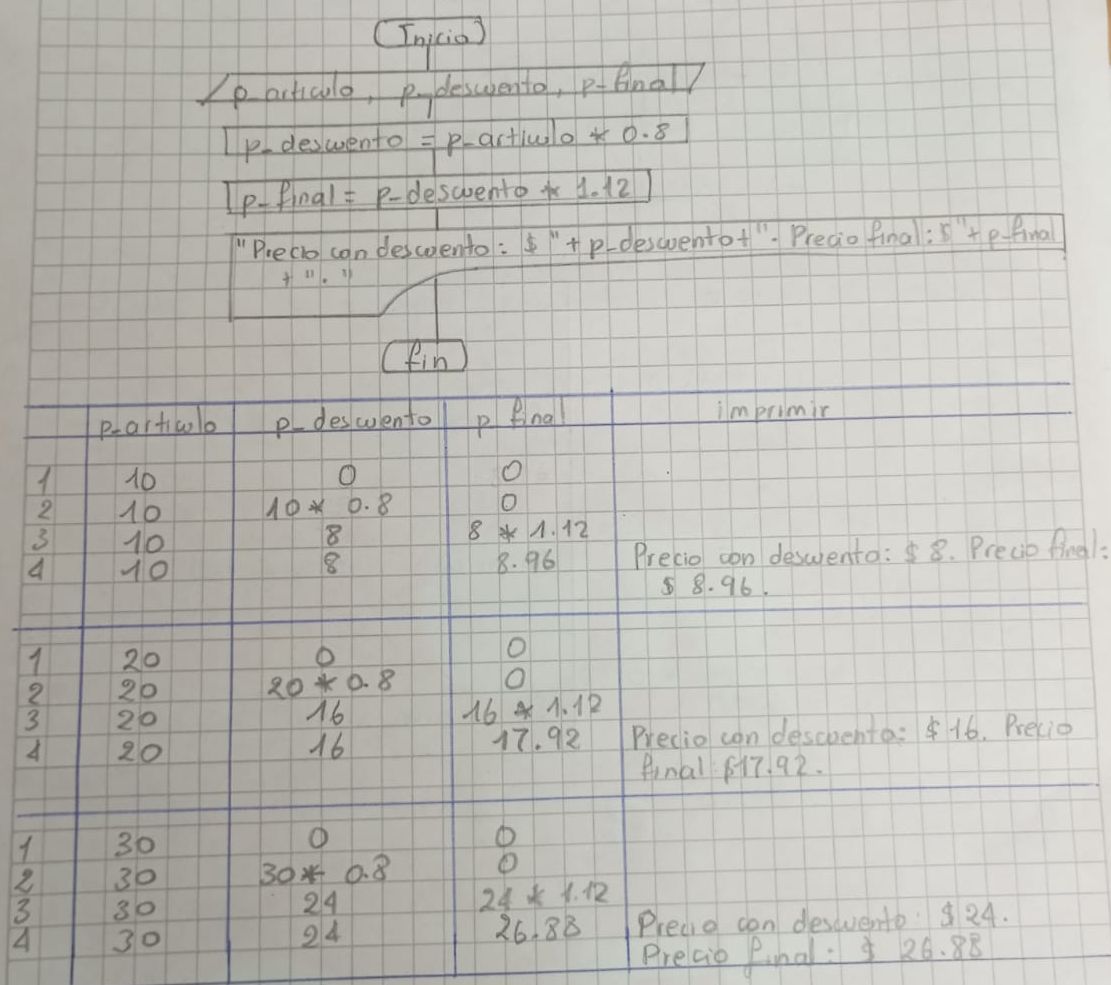 Inicio
p-articulo, p-descuento, p-final
p-descuento = p-articulo * 0.8
p-final = p-descuento * 1.12
"Precio con descuento: $ "+ p-descuento+". Precio final: $ "+ p-final
+ "."
fin
p-articulo p-descuento p final imprimir
1 10 0 0
2 10 10 * 0.8 0
3 10 8 8 * 1.12
4 10 8 8.96 Precio con descuento: $ 8. Precio final:
$ 8.96.
1 20 0 0
2 20 20 * 0.8 0
3 20 16 16 * 1.12
4 20 16 17.92 Precio con descuento: $ 16. Precio
final: $17.92.
1 30 0 0
2 30 30 * 0.8 0
3 30 24 24 * 1.12
4 30 24 26.88 Precio con descuento: $ 24.
Precio final: $ 26.88